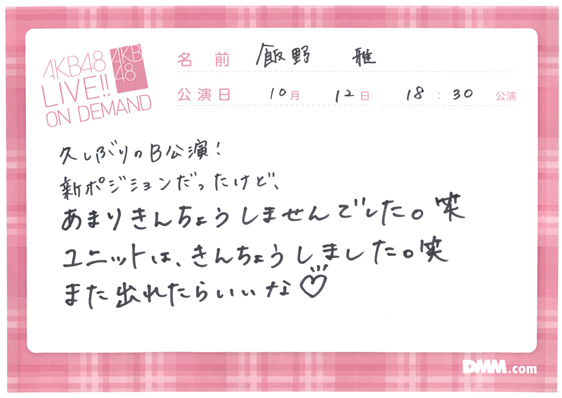 AKB48
LIVE!!
ON DEMAND
AKB
48
名前 飯野 雅
公演日 10月 12日 18:30 公演
久しぶりのB公演!
新ポジションだったけど、
あまりきんちょうしませんでした。笑
ユニットは、きんちょうしました。笑
また出れたらいいな♡
DMM.com